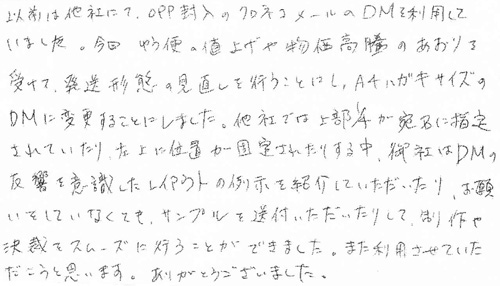 以前は他社にて、OPP封入のクロネコメールのDMを利用して
いました。今回ゆう便の値上げや物価高騰のあおりを
受けて、発送形態の見直しを行うことにし、A4ハガキサイズの
DMに変更することにしました。他社では上部1/4が宛名に指定
されていたり、左上に位置が固定されたりする中、御社はDMの
反響を意識したレイアウトの例示を紹介していただいたり、お願
いをしていなくても、サンプルを送付いただいたりして、制作や
決裁をスムーズに行うことができました。また利用させていた
だこうと思います。ありがとうございました。